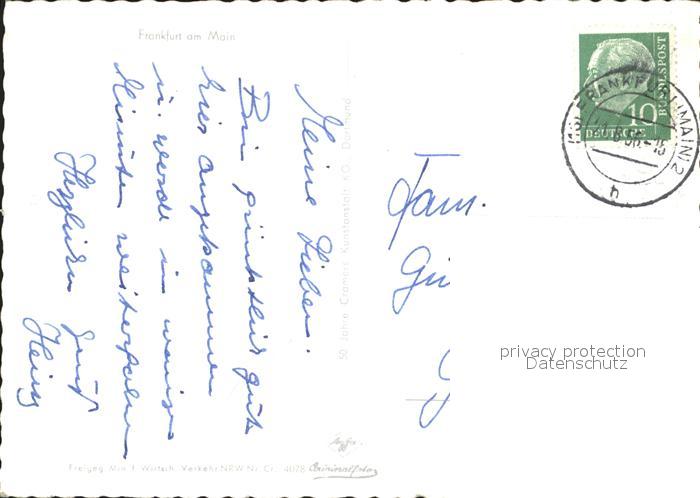 Frankfurt am Main
Meine Lieben.
Bin pünktlich gut
hier angekommen
u. werde in wenigen
Minuten weiterfahren
Herzlichen Gruß
Heinz
50 Jahre Cramers Kunstanstalt KG. Dortmund
Fam.
DEUTSCHE BUNDESPOST
10
FRANKFURT (MAIN) 2
h
privacy protection
Datenschutz
Freigeg. Min. f. Wirtsch. Verkehr. NRW. Nr. Cr. 4078